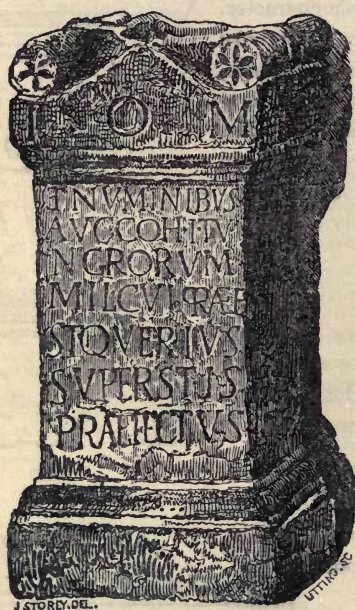 I O M
ET NVMINIBVS
AVG COH I TV
NGRORVM
MIL CVI PRAE
ST Q VERIVS
SVPERSTIS
PRAEFECTVS
J STOREY. DEL.
UTTING. SC